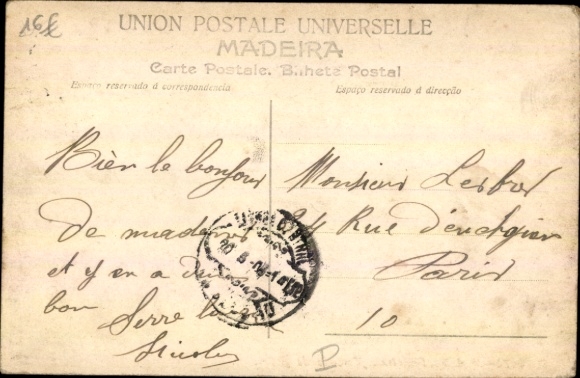 16£
UNION POSTALE UNIVERSELLE
MADEIRA
Carte Postale. Bilhete Postal
Espaço reservado á correspondencia
Espaço reservado á direcção
Bièn le bonjour
de madere
et y en a du
bon
Serre la
Nicolas
Monsieur
24 Rue d'enghien
Paris
10
P